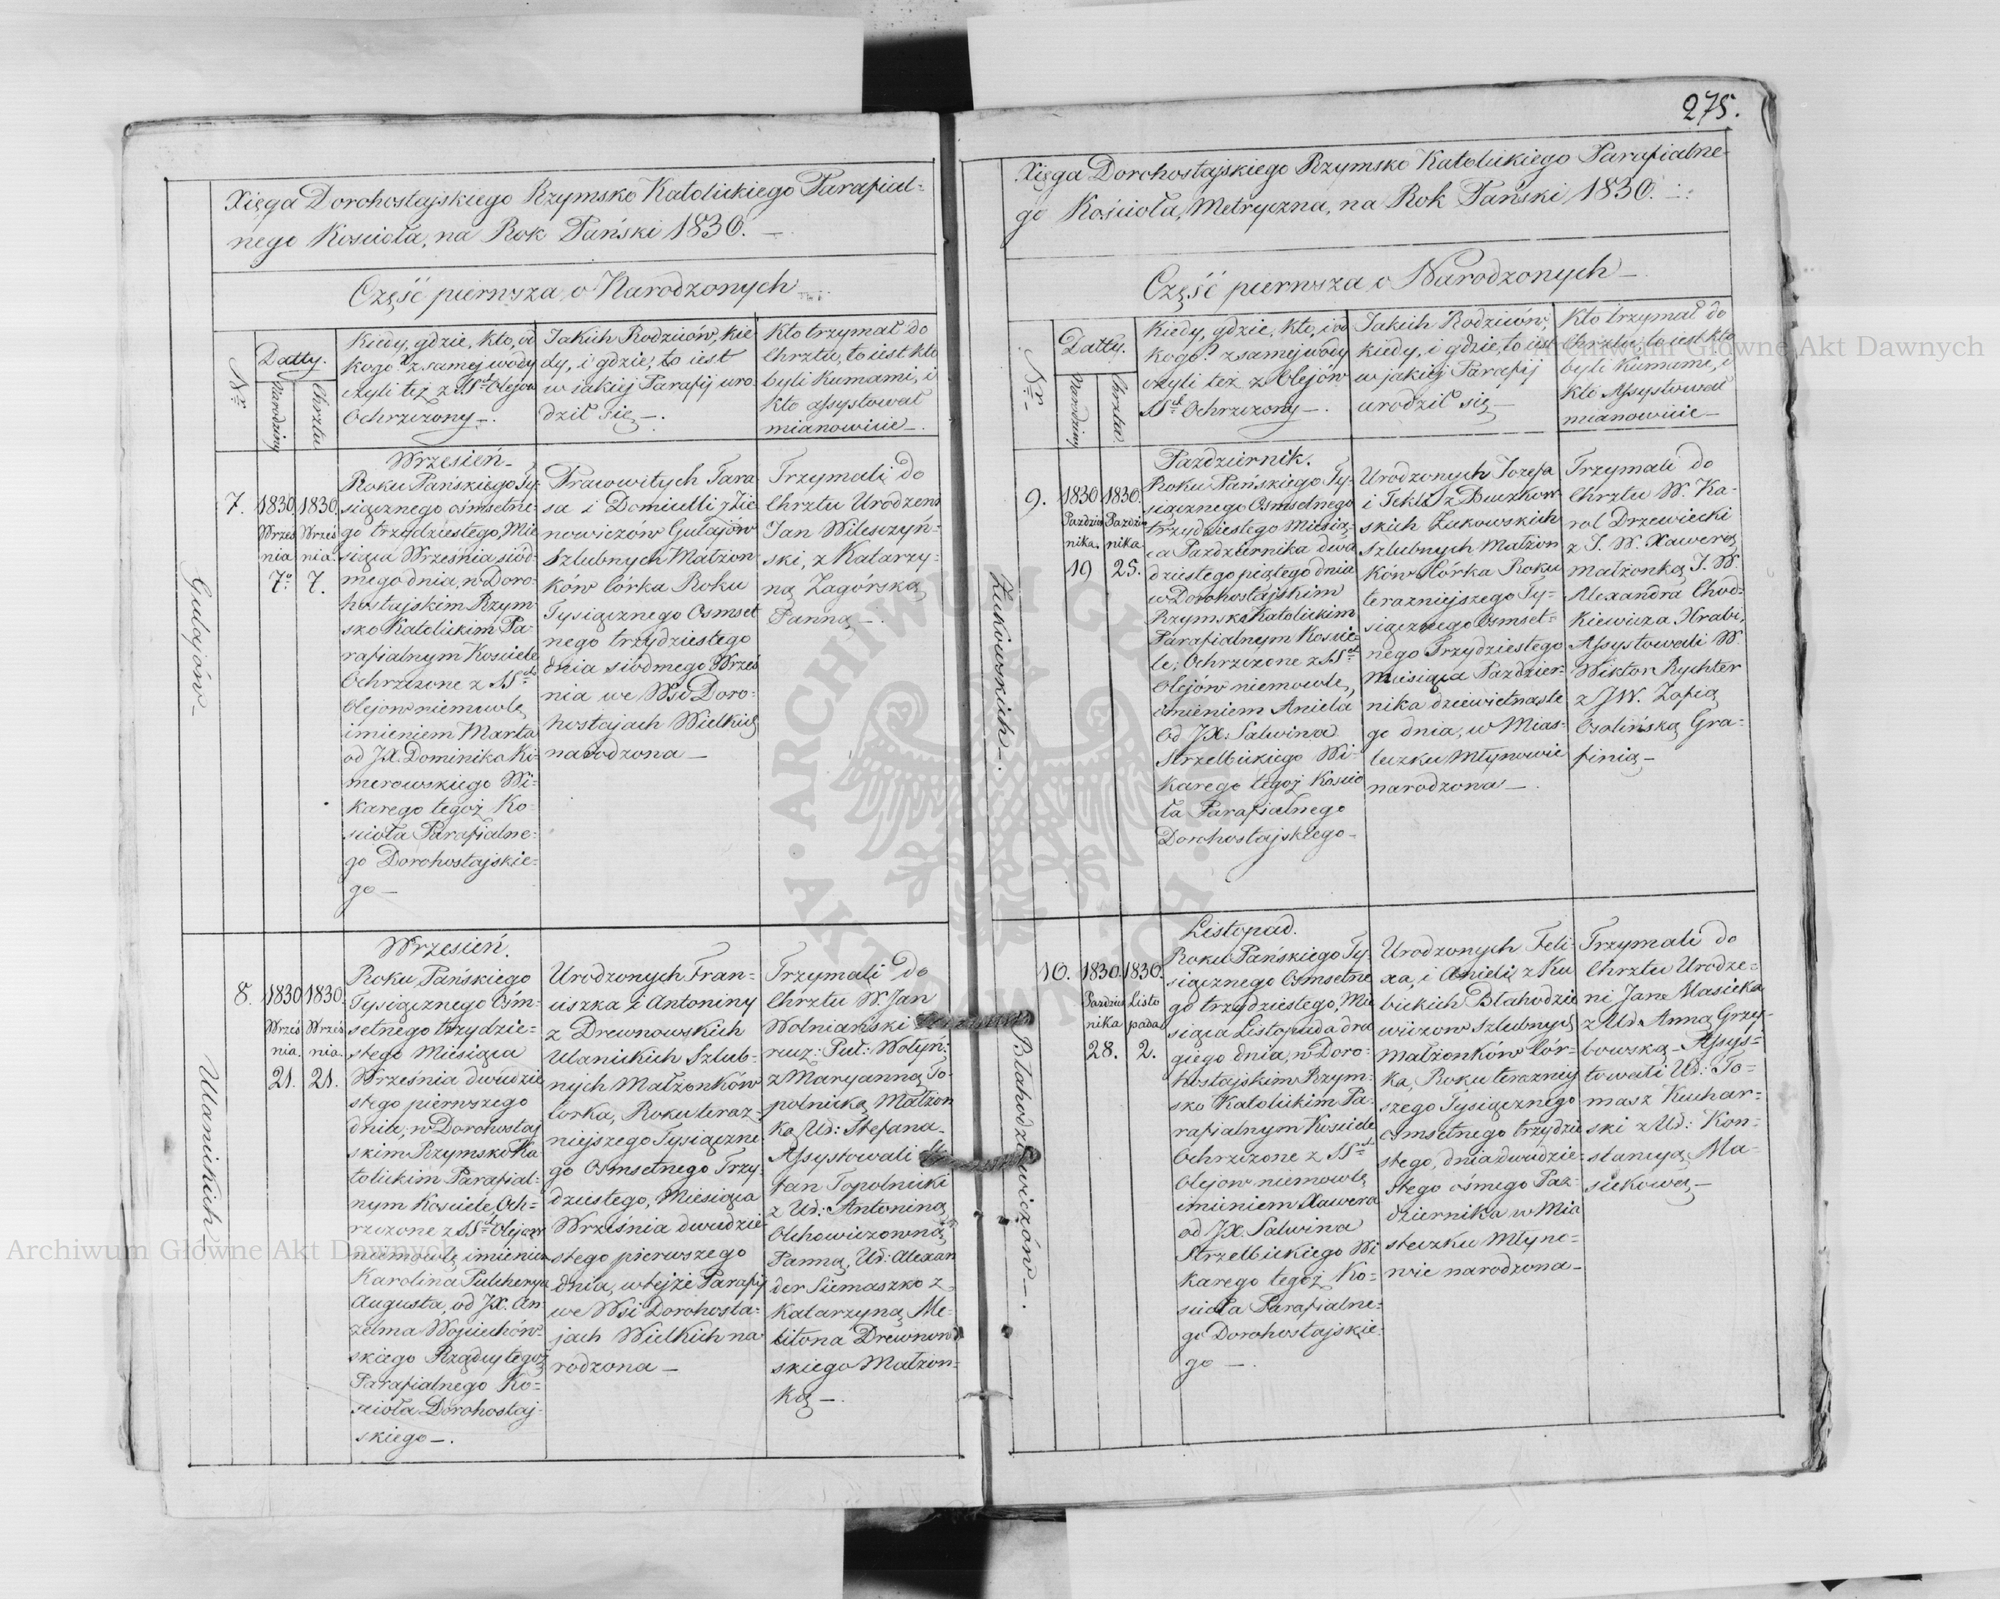 275.
Xięga Dorohostajskiego Rzymsko Katolickiego Parafial=
nego Kościoła, na Rok Pański 1830. —
Część pierwsza o Narodzonych
Nr
Datty.
Narodziny
Chrztu
Kiedy, gdzie, kto, od
kogo? z samej wody
czyli też z SSt Olejow
Ochrzczony —.
Jakich Rodziców, kie
dy, i gdzie, to iest
w iakiej Parafij uro
dził się —.
Kto trzymał do
Chrztu, to iest kto
byli Kumami, i
kto assystował
mianowicie —.
Gulajów —
7.
1830
Wrześ
nia
7o
1830.
Wrześ
nia.
7.
Wrzesień —
Roku Pańskiego Ty
siącznego ośmsetne
go trzydziestego, Mie
siąca Września siód
mego dnia, w Doro=
hostajskim Rzym=
sko Katolickim Pa=
rafialnym Kościele
Ochrzczone z SSt
Olejow niemowle
imieniem Marta
od JX. Dominika Ki=
merowskiego Wi=
karego tegoż Ko
scioła Parafialne=
go Dorohostajskie=
go —
Pracowitych Tara
sa i Domicelli z Zie
nowiczów Gulajów
Szlubnych Małżon
ków Córka Roku
Tysiącznego Osmset
nego trzydziestego
dnia siodmego Wrześ
nia we Wsi Doro=
hostajach Wielkich
narodzona —
Trzymali do
Chrztu Urodzeni
Jan Wilczyń=
ski, z Katarzy=
ną Zagórską
Panną —.
Ulanickich —
8.
1830
Wrześ
nia.
21.
1830.
Wrześ
nia.
21.
Wrzesień.
Roku Pańskiego
Tysiącznego Ośm=
setnego trzydzie=
stego Miesiąca
Września dwudzie
stego pierwszego
dnia, w Dorohostaj
skim Rzymsko Ka
tolickim Parafial=
nym Kościele, Och=
rzczone z SSt Olejow
niemowle imieniem
Karolina Pulcherya
Augusta, od JX. An
zelma Wojciechów=
skiego Rządcy tegoż
Parafialnego Ko=
scioła Dorohostaj=
skiego —.
Urodzonych Fran=
ciszka i Antoniny
z Drewnowskich
Ulanickich Szlub=
nych Małżonków
Corka, Roku teraz=
niejszego Tysiączne
go Osmsetnego Trzy=
dziestego, Miesiąca
Września dwudzie
stego pierwszego
dnia, w tejże Parafij
we Wsi Dorohosta=
jach Wielkich na
rodzona —
Trzymali do
Chrztu W. Jan
Wolniański
Wołyń:
z Maryanną To=
polnicką Małżon
ką Ud: Stefana
Assystowali
Topolnicki
z Ud: Antoniną
Olchowiczowną
Panną, Ud: Alexan
der Siemaszko z
Katarzyną Me=
litona Drewnow
skiego Małżon=
ką —.
Xięga Dorohostajskiego Rzymsko Katolickiego Parafialne=
go Kościoła, Metryczna, na Rok Pański 1830. —
Część pierwsza o Narodzonych —
Nr
Datty.
Narodziny
Chrztu
Kiedy, gdzie, kto, i od
kogo? z samej wody
czyli też z Olejów
SSt Ochrzczony —.
Jakich Rodziców,
kiedy, i gdzie, to iest
w jakiej Parafij
urodził się —
Kto trzymał do
Chrztu, to iest kto
byli Kumami, i
kto Assystował
mianowicie —
Żukowskich —.
9.
1830
Pazdzier
nika.
19
1830.
Pazdzier
nika
25.
Pazdziernik.
Roku Pańskiego Ty=
siącznego Osmsetnego
trzydziestego Miesią=
ca Pazdziernika dwa
dziestego piątego dnia
w Dorohostajskim
Rzymsko Katolickim
Parafialnym Koscie
le, Ochrzczone z SSt
Olejów niemowle,
imieniem Aniela
Od JX. Salwina
Strzelbickiego Wi=
karego tegoż Koscio
ła Parafialnego
Dorohostajskiego —
Urodzonych Jozefa
i Tekli z Buczkow
skich Żukowskich
Szlubnych Małżon
ków Córka Roku
terazniejszego Ty=
siącznego osmset=
nego Trzydziestego
Miesiąca Pazdzier=
nika dziewietnaste
go dnia, w Mias=
teczku Młynowie
narodzona —.
Trzymali do
Chrztu W. Ka=
rol Drzewiecki
z J. W. Xawerą
małżonką J. W.
Alexandra Chod=
kiewicza Hrabi,
Assystowali W.
Wiktor Rychter
z JW. Zofią
Ossolińską Gra=
finią —
Błahodziewiczów —.
10.
1830.
Pazdzier
nika
28.
1830.
Listo
pada
2.
Listopad.
Roku Pańskiego Ty
siącznego Osmsetne
go trzydziestego, Mie
siąca Listopada dru
giego dnia, w Doro=
hostajskim Rzym=
sko Katolickim Pa=
rafialnym Kosciele
Ochrzczone z SSt
Olejow niemowle
imieniem Xawera
od JX. Salwina
Strzelbickiego Wi
karego tegoż Ko=
scioła Parafialne=
go Dorohostajskie=
go —.
Urodzonych Feli=
xa, i Anieli z Ku
bickich Błahodzie
wiczow Szlubnych
Małżonków Cór=
ka, Roku terazniey
szego Tysiącznego
osmsetnego trzydzie
stego, dnia dwudzie=
stego ośmego Paz=
dziernika w Mia
steczku Młyno=
wie narodzona —
Trzymali do
Chrztu Urodze=
ni Jan Masicka
z Ud: Anną Grzy=
bowską — Assys=
towali Ud: To=
masz Kuchar=
ski z Ud: Kon=
stancyą Ma=
sickową —
Archiwum Główne Akt Dawnych
Archiwum Główne Akt Dawnych